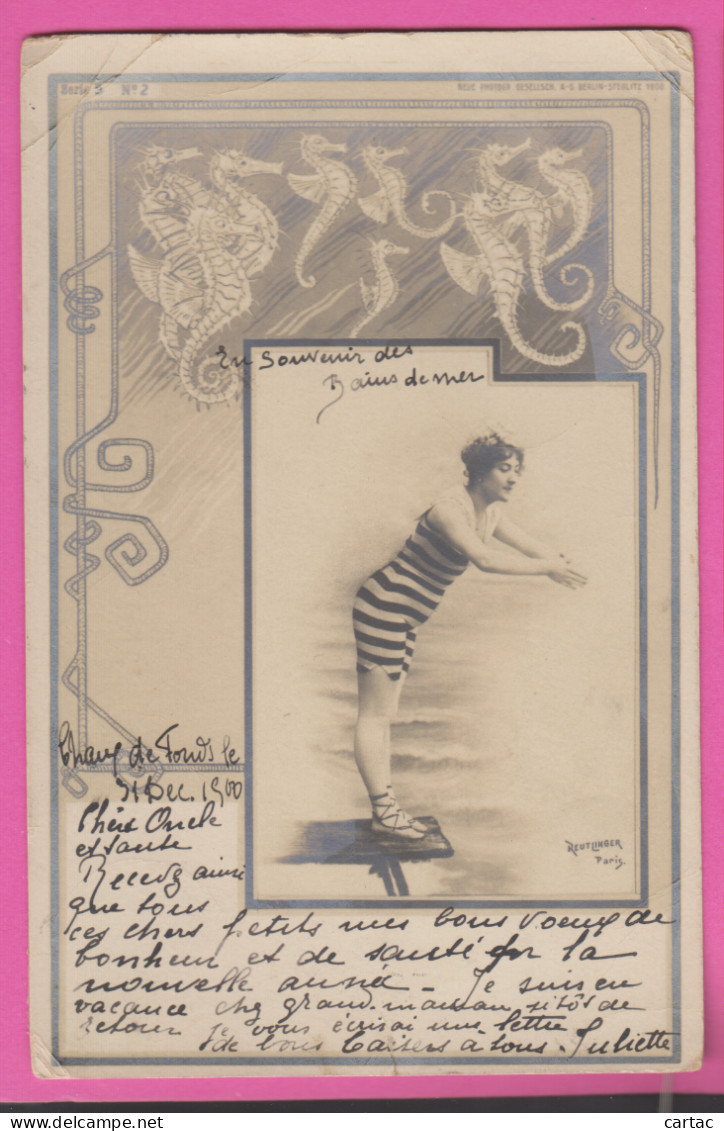 Serie 5 Nº 2
NEUE PHOTOGR. GESELLSCH. A-G. BERLIN-STEGLITZ 1900
En Souvenir des
Bains de mer
REUTLINGER
Paris.
Chaux de Fonds le
31 Dec. 1900
Chers Oncle
et tante
Recevez ainsi
que tous
ces chers petits mes bons voeux de
bonheur et de santé pr la
nouvelle année - Je suis en
vacance chez grand-maman sitôt de
retour je vous écrirai une lettre
de bons baisers a tous. Juliette
cartac